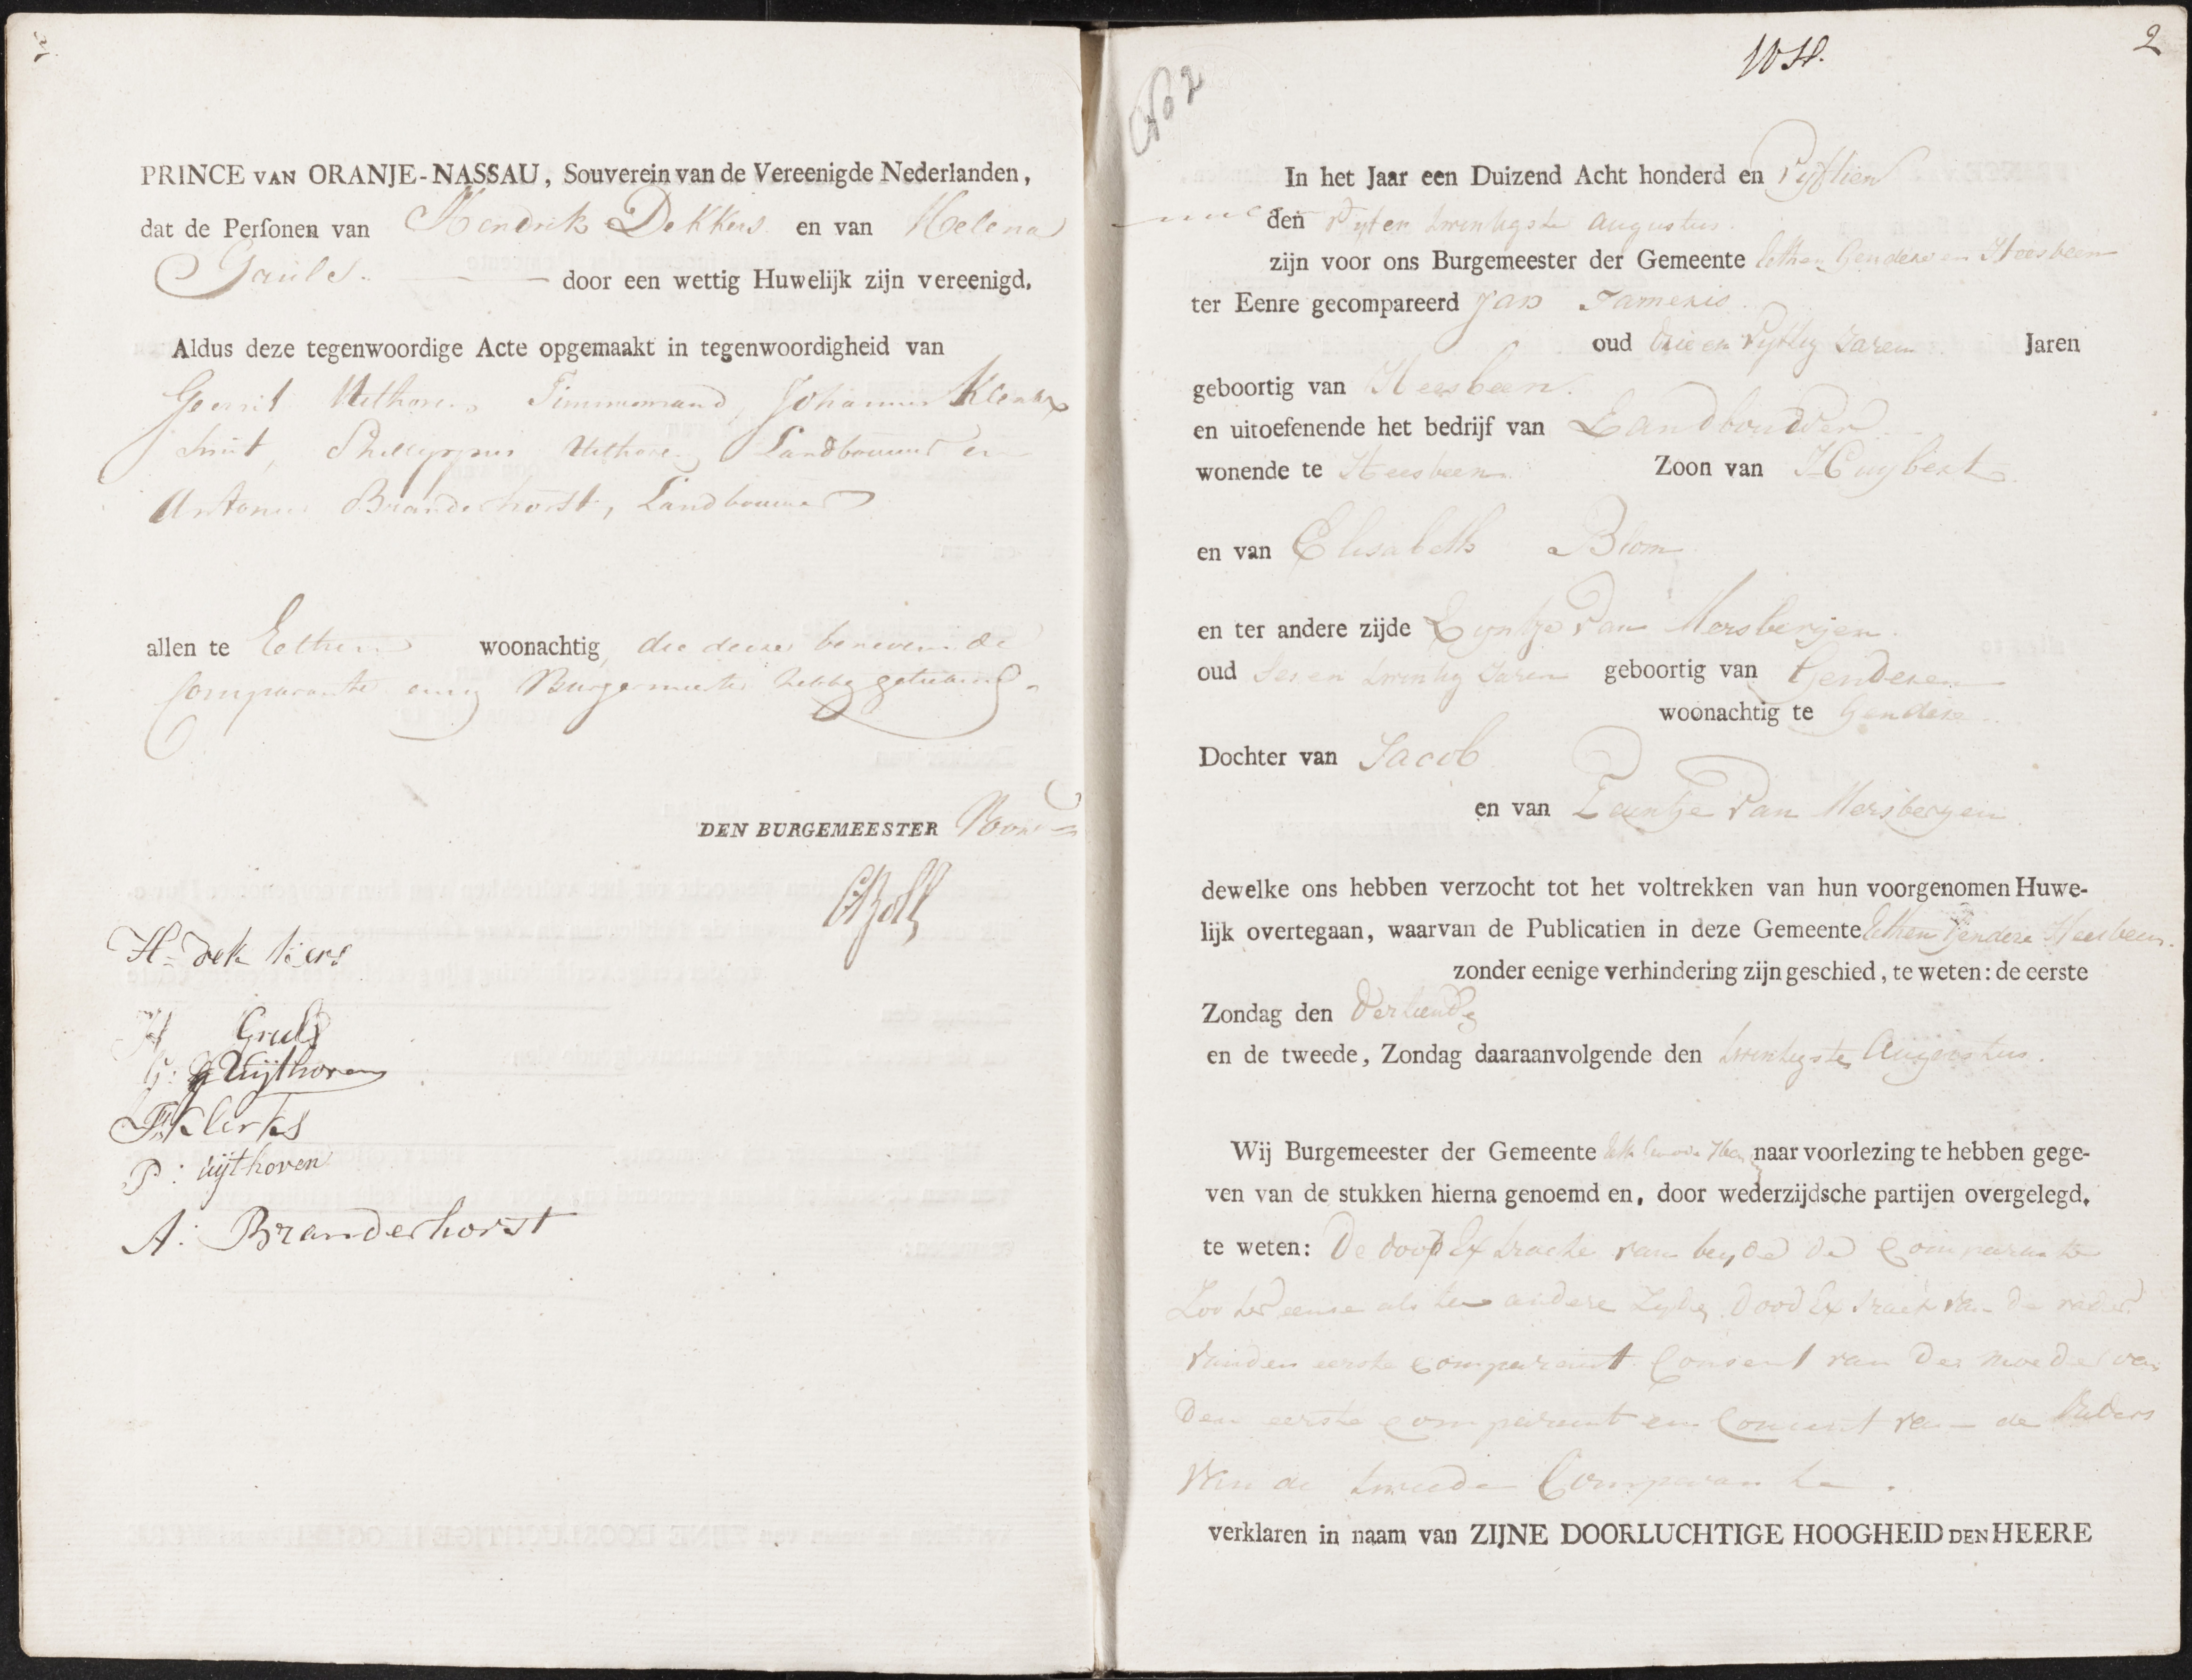 PRINCE VAN ORANJE-NASSAU, Souverein van de Vereenigde Nederlanden,
dat de Personen van Hendrik Dekkers en van Helena
door een wettig Huwelijk zijn vereenigd.
Aldus deze tegenwoordige Acte opgemaakt in tegenwoordigheid van
Gerrit Uithoven Timmerman, Johannes
Smit, Uithoven Landbouwer en
Antonie Branderhorst, Landbouwer
allen te Eethen woonachtig die deze benevens de
Comparante Burgermeester hebbe getekend
DEN BURGEMEESTER
H Dekkers
H
G: Uijthoven
Klerks
P: uijthoven
A: Branderhorst
2
No 2
In het Jaar een Duizend Acht honderd en Vyftien
den Vyf en twintigste augustus
zijn voor ons Burgemeester der Gemeente Ethen Genderen en Heesbeen
ter Eenre gecompareerd Jan Tameris
oud Drie en Vyftig Jaren Jaren
geboortig van Heesbeen
en uitoefenende het bedrijf van Landbouwer
wonende te Heesbeen Zoon van Huybert
en van Elisabeth Blom
en ter andere zijde Lyntje Van Mersbergen
oud Ses en twintig Jaren geboortig van Genderen
woonachtig te Genderen
Dochter van Jacob
en van Teuntje Van Mersbergen
dewelke ons hebben verzocht tot het voltrekken van hun voorgenomen Huwe-
lijk overtegaan, waarvan de Publicatien in deze Gemeente Ethen Gendere Heesbeen
zonder eenige verhindering zijn geschied, te weten: de eerste
Zondag den Dertiende
en de tweede, Zondag daaraanvolgende den twintigste Augustus.
Wij Burgemeester der Gemeente naar voorlezing te hebben gege-
ven van de stukken hierna genoemd en, door wederzijdsche partijen overgelegd,
te weten: De doop Extracte van beyde de Comparante
Zoo ter eenre als ter andere Zyde, Dood Extract van de vader
van den eerste Comparant Consent van de moeder van
Den eerste Comparant en Consent van de Ouders
Van de tweede Comparante.
verklaren in naam van ZIJNE DOORLUCHTIGE HOOGHEID DEN HEERE